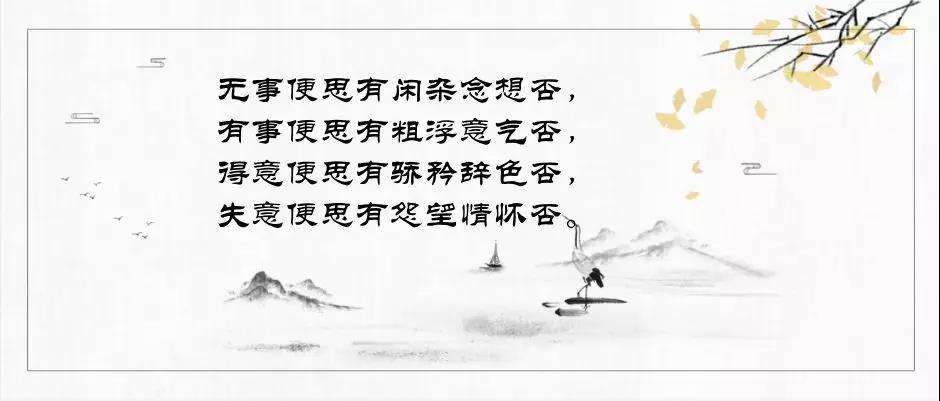 无事便思有闲杂念想否，
有事便思有粗浮意气否，
得意便思有骄矜辞色否，
失意便思有怨望情怀否。